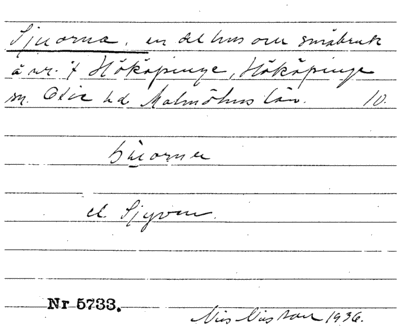 Sjuorna, en del hus och småbruk
å nr. 7 Hököpinge, Hököpinge
sn. Oxie hd Malmöhus län. 10.
el Sjyorna
Nr 5733.
Nils Nilsson 1936.